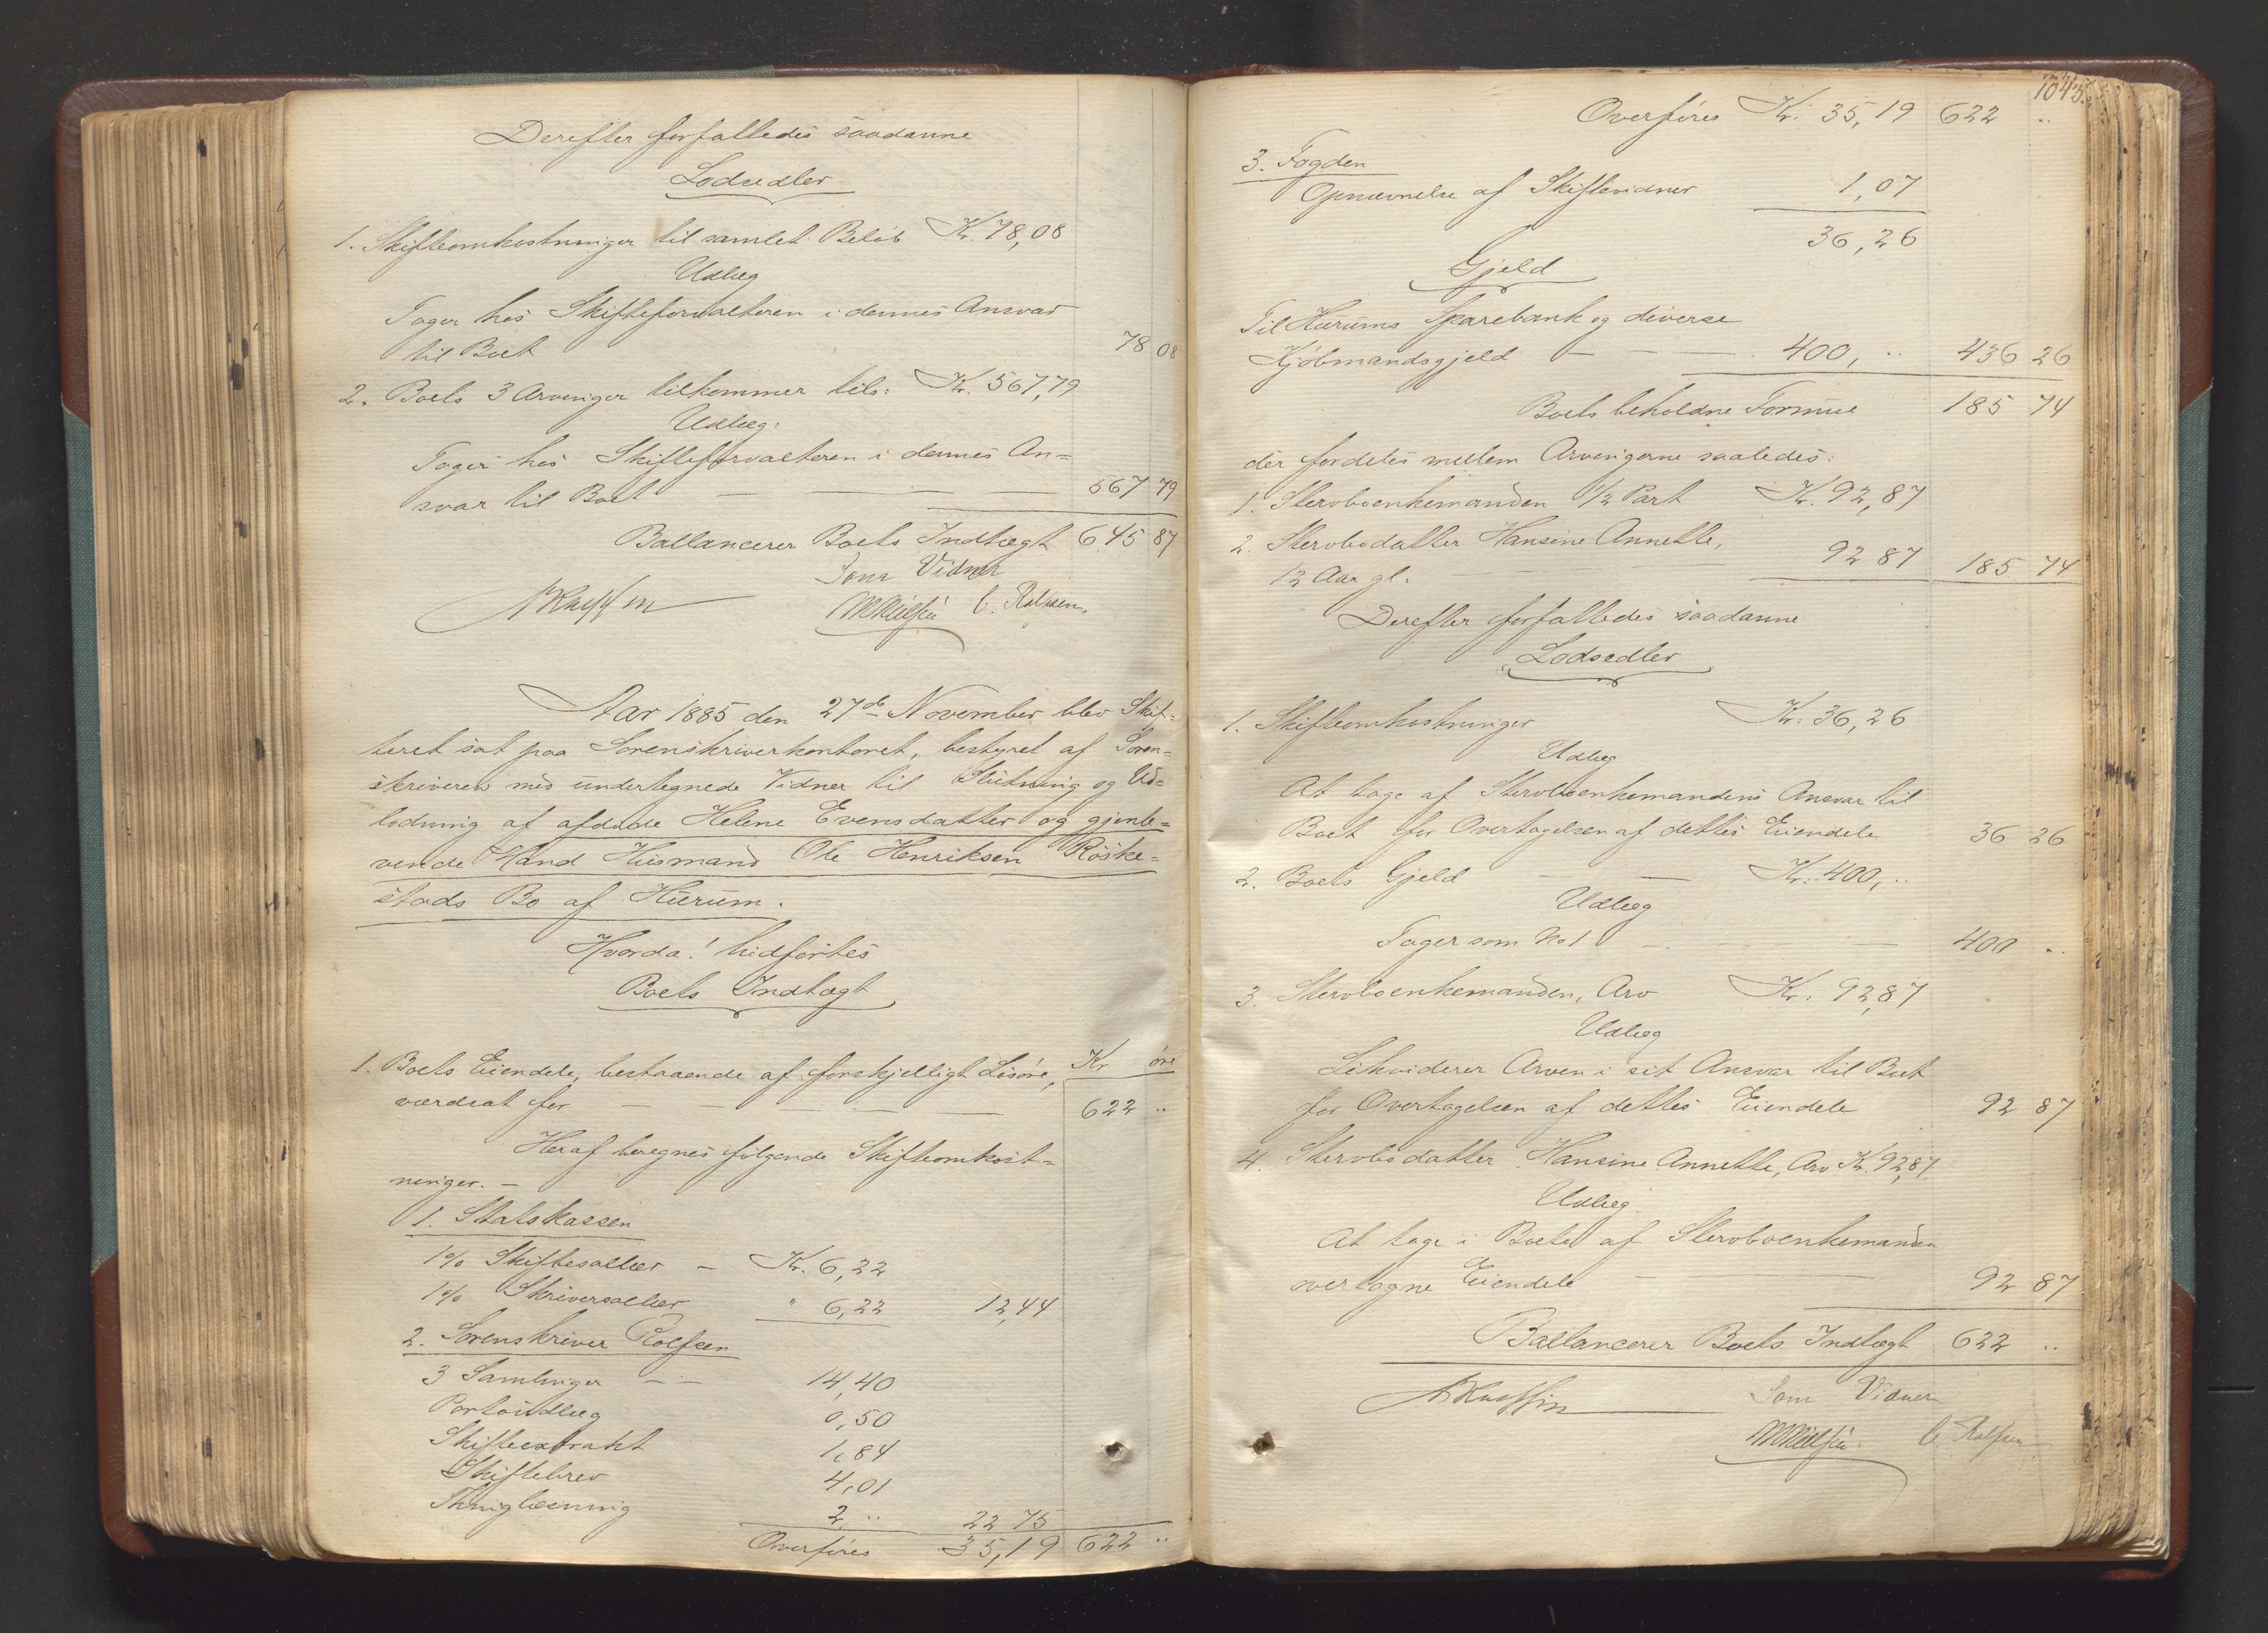 Derefter forfattedes saadanne
Lodsedler
1. Skifteomkostninger til samlet Beløb Kr. 78,08
Udlæg
Tages hos Skifteforvalteren i dennes Ansvar
til Boet 78 08
2. Boets 3 Arvinger tilkommer tils: Kr. 567,79
Udlæg:
Tages hos Skifteforvalteren i dennes An=
svar til Boet — — — — 567 79
Ballancerer Boets Indtægt 645 87
Som Vidner
C. Rolfsen.
Aar 1885 den 27de November blev Skif=
teret sat paa Sorenskriverkontoret, bestyret af Soren=
skriveren med undertegnede Vidner til Slutning og Ud=
lodning af afdøde Helene Evensdatter og gjenle=
vende Mand Husmand Ole Henriksen Röske=
stads Bo af Hurum.
Hvorda! hidførtes
Boets Indtægt
Kr øre
1. Boets Eiendele, bestaaende af forskjelligt Løsøre,
værdsat for — — — — 622 ..
Heraf beregnes følgende Skifteomkost=
ninger. —
1. Statskassen
1% Skiftesallær — Kr. 6,22
1% Skriversallær " 6,22 12,44
2. Sorenskriver Rolfsen
3 Samlinger — — 14,40
Portoudlæg 0,50
Skifteextrakt 1,84
Skiftebrev 4,01
Thinglæsning 2,.. 22 75
Overføres 35,19 622 ..
1045.
Overføres Kr. 35,19 622 ..
3. Fogden
Opnævnelse af Skiftevidner 1,07
36,26
Gjeld
Til Hurums Sparebank og diverse
Kjøbmandsgjeld — — — 400, .. 436 26
Boets beholdne Formue 185 74
der fordeles mellem Arvingerne saaledes:
1. Sterboenkemanden 1/2 Part Kr. 92,87
2. Sterbodatter Hansine Annette,
12 Aar gl. 92 87 185 74
Derefter forfattedes saadanne
Lodsedler
1. Skifteomkostninger Kr. 36,26
Udlæg
At tage af Sterboenkemandens Ansvar til
Boet for Overtagelsen af dettes Eiendele 36 26
2. Boets Gjeld — — Kr. 400, ..
Udlæg
Tages som No 1 — — 400 ..
3. Sterboenkemanden, Arv Kr. 92,87
Udlæg
Likviderer Arven i sit Ansvar til Boet
for Overtagelsen af dettes Eiendele 92 87
4. Sterbodatter Hansine Annette, Arv Kr. 92,87
Udlæg
At tage i Boets af Sterboenkemanden
overtagne Eiendele — — 92 87
Ballancerer Boets Indtægt 622 ..
Som Vidner
C. Rolfsen